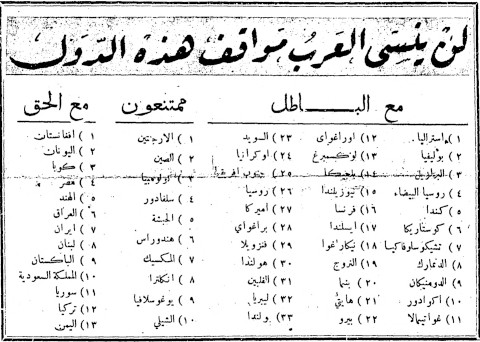 لن ينسى العرب مواقف هذه الدول
مع الباطل
١ ) استراليا
٢ ) بوليفيا
٣ ) البرازيل
٤ ) روسيا البيضاء
٥ ) كندا
٦ ) كوستاريكا
٧ ) تشيكوسلوفاكيا
٨ ) الدنمارك
٩ ) الدومنيكان
١٠ ) اكوادور
١١ ) غواتيمالا
١٢ ) اوراغواي
١٣ ) لوكسمبرغ
١٤ ) بلجيكا
١٥ ) نيوزيلندا
١٦ ) فرنسا
١٧ ) ايسلندا
١٨ ) نيكاراغوا
١٩ ) النروج
٢٠ ) بنما
٢١ ) هايتي
٢٢ ) بيرو
٢٣ ) السويد
٢٤ ) اوكرانيا
٢٥ ) جنوب افريقيا
٢٦ ) روسيا
٢٧ ) اميركا
٢٨ ) براغواي
٢٩ ) فنزويلا
٣٠ ) هولندا
٣١ ) الفلبين
٣٢ ) ليبريا
٣٣ ) بولندا
ممتنعون
١ ) الارجنتين
٢ ) الصين
٣ ) كولومبيا
٤ ) سلفادور
٥ ) الحبشة
٦ ) هندوراس
٧ ) المكسيك
٨ ) انكلترا
٩ ) يوغوسلافيا
١٠ ) الشيلي
مع الحق
١ ) افغانستان
٢ ) اليونان
٣ ) كوبا
٤ ) مصر
٥ ) الهند
٦ ) العراق
٧ ) ايران
٨ ) لبنان
٩ ) الباكستان
١٠ ) المملكة السعودية
١١ ) سوريا
١٢ ) تركيا
١٣ ) اليمن